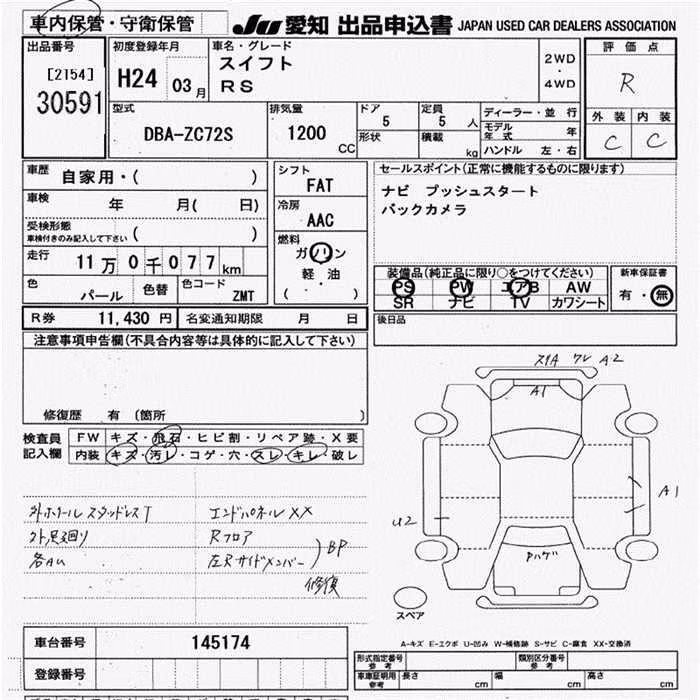 車内保管・守衛保管
JU 愛知 出品申込書 JAPAN USED CAR DEALERS ASSOCIATION
出品番号 [2154] 30591
初度登録年月 H24 03月
車名・グレード
スイフト
RS
2WD・4WD
評価点 R
外装 内装
C C
型式 DBA-ZC72S
排気量 1200 CC
ドア 5
定員 5 人
形状 積載 kg
ディーラー・並行
モデル年式 年
ハンドル 左・右
車歴 自家用・( )
車検 年 月( 日)
受検形態 車検付きのみ記入して下さい ( )
走行 11万0千077km
色 パール 色替 色コード ZMT
シフト FAT
冷房 AAC
燃料 ガソリン
軽・油
( )
セールスポイント(正常に機能するものに限ります)
ナビ プッシュスタート
バックカメラ
装備品(純正品に限り○をつけてください)
PS PW エアB AW
SR ナビ TV カワシート
新車保証書
有・無
R券 11,430円 名変通知期限 月 日
後日品
注意事項申告欄(不具合内容等は具体的に記入して下さい)
修復歴 有 (箇所 )
検査員記入欄
FW キズ・飛石・ヒビ割・リペア跡・X要
内装 キズ・汚レ・コゲ・穴・スレ・キレ・破レ
外ホイール スタッドレスT
外,足廻り
各AU
エンドパネルXX
Rフロア
左Rサイドメンバー
BP
修復
A2
A1
A1
U2
Pハゲ
スペア
A-キズ E-エクボ U-凹み W-補修跡 S-サビ C-腐食 XX-交換済
車台番号 145174
登録番号
形式指定番号 参考
類別区分番号 参考
車庫証明用 参考 長さ cm 幅 cm 高さ cm